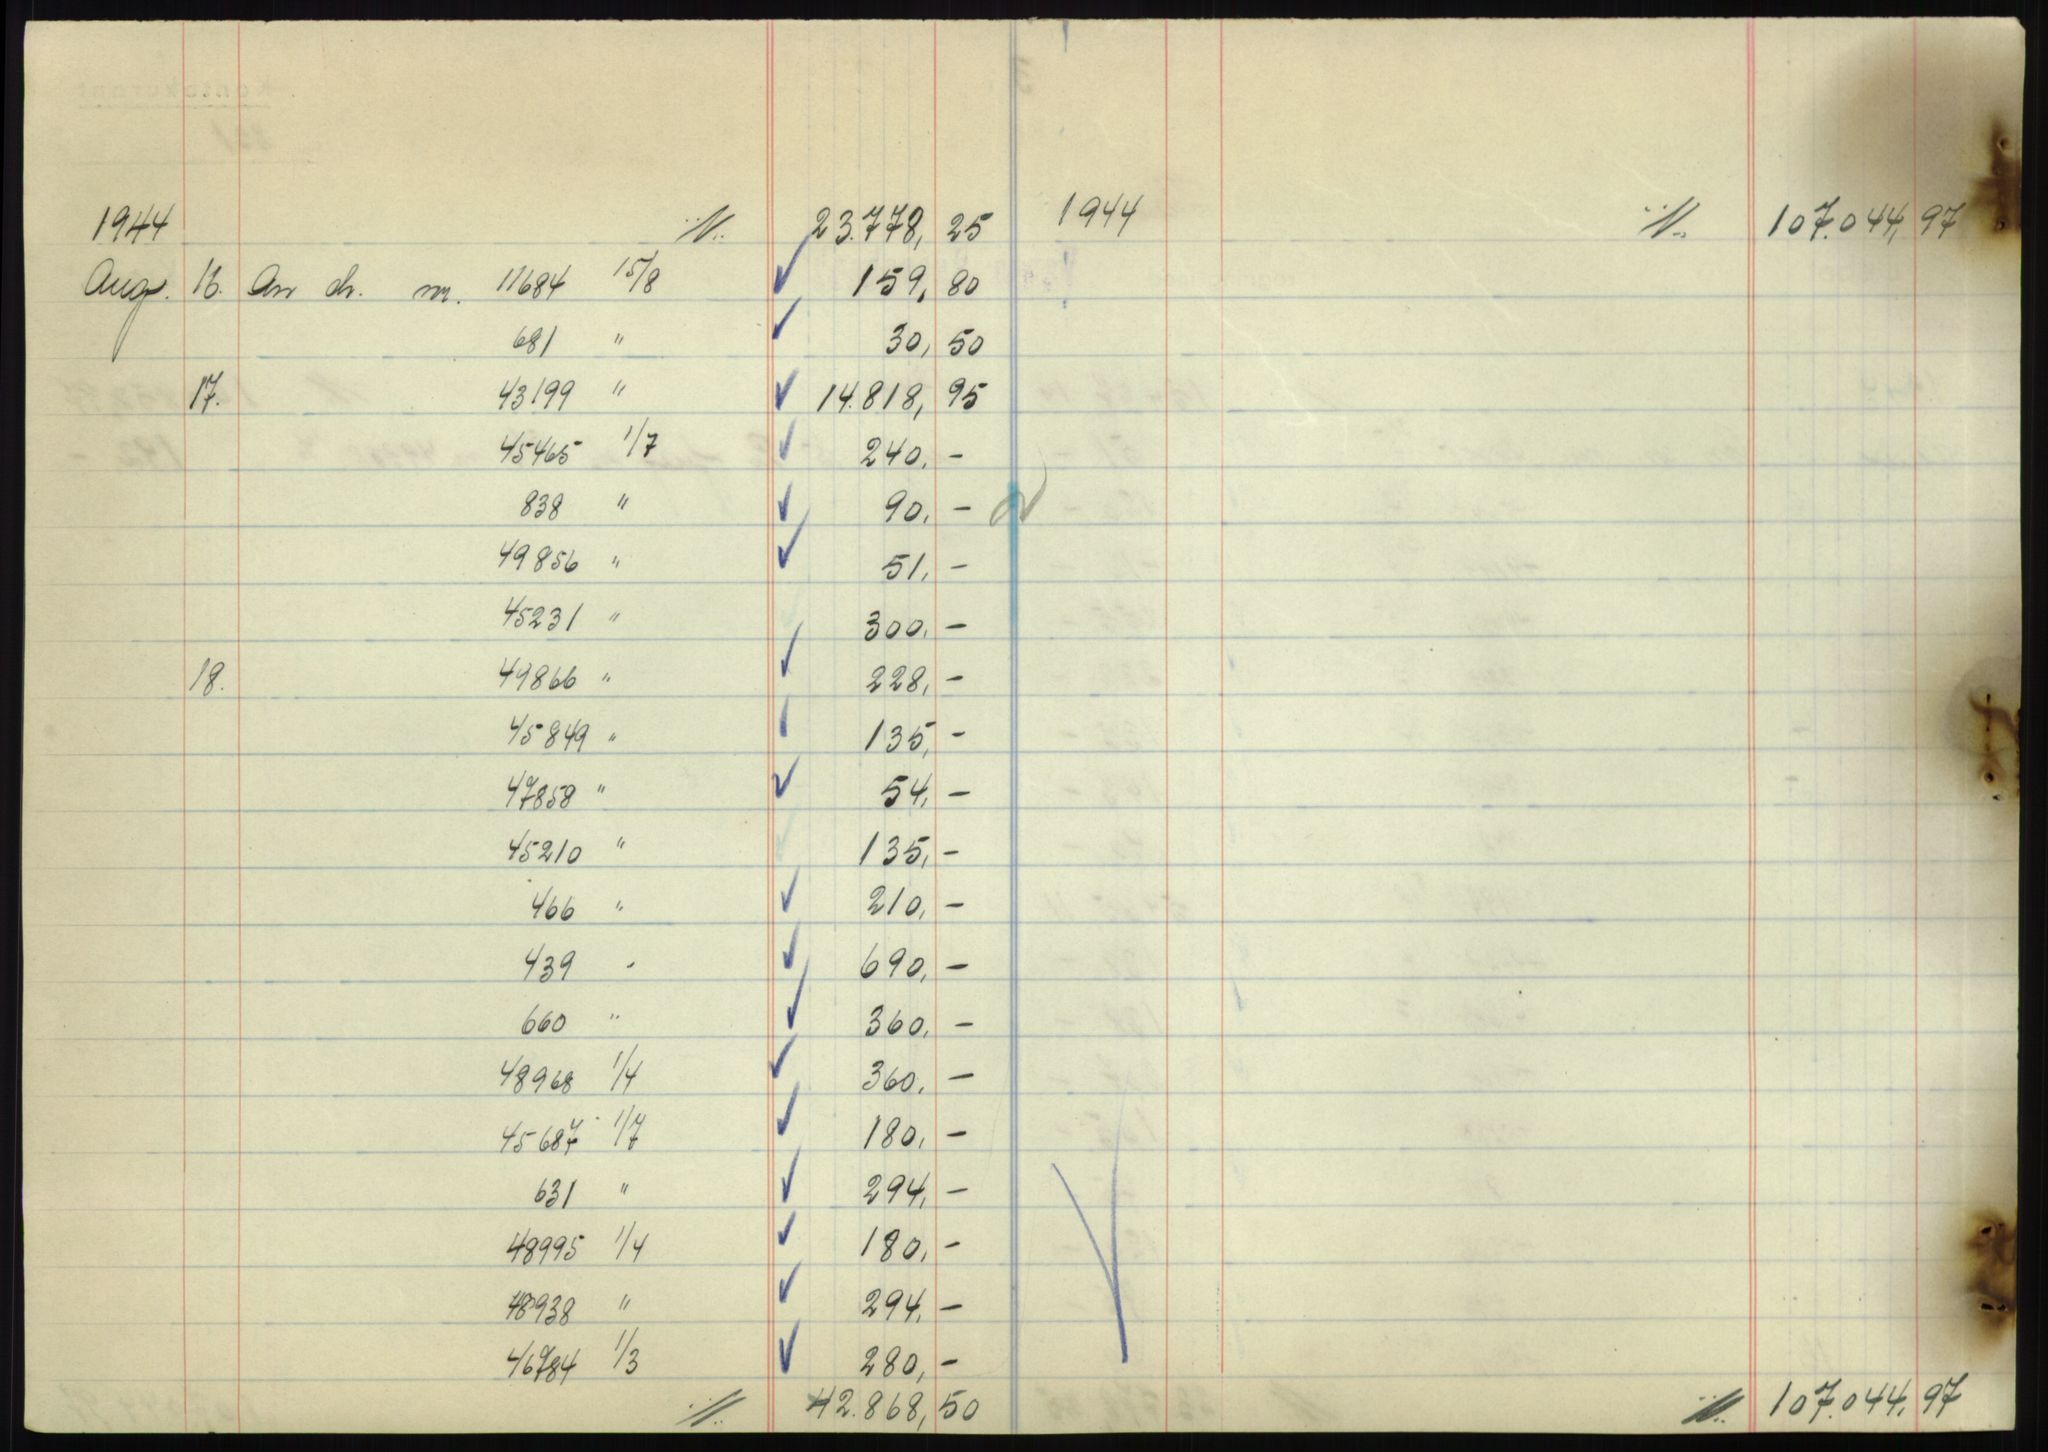 1944 ·/·. 23.778,25 1944 ·/·. 107.044,97
Aug. 16. An ch. nr. 11684 15/8 159,80
681 " 30,50
17. 43199 " 14.818,95
45465 1/7 240,-
838 " 90,-
49856 " 51,-
45231 " 300,-
18. 49866 " 228,-
45849 " 135,-
47858 " 54,-
45210 " 135,-
466 " 210,-
439 " 690,-
660 " 360,-
48968 1/4 360,-
45687 1/7 180,-
631 " 294,-
48995 1/4 180,-
48938 " 294,-
46784 1/3 280,-
·/·. 42.868,50 ·/·. 107.044,97